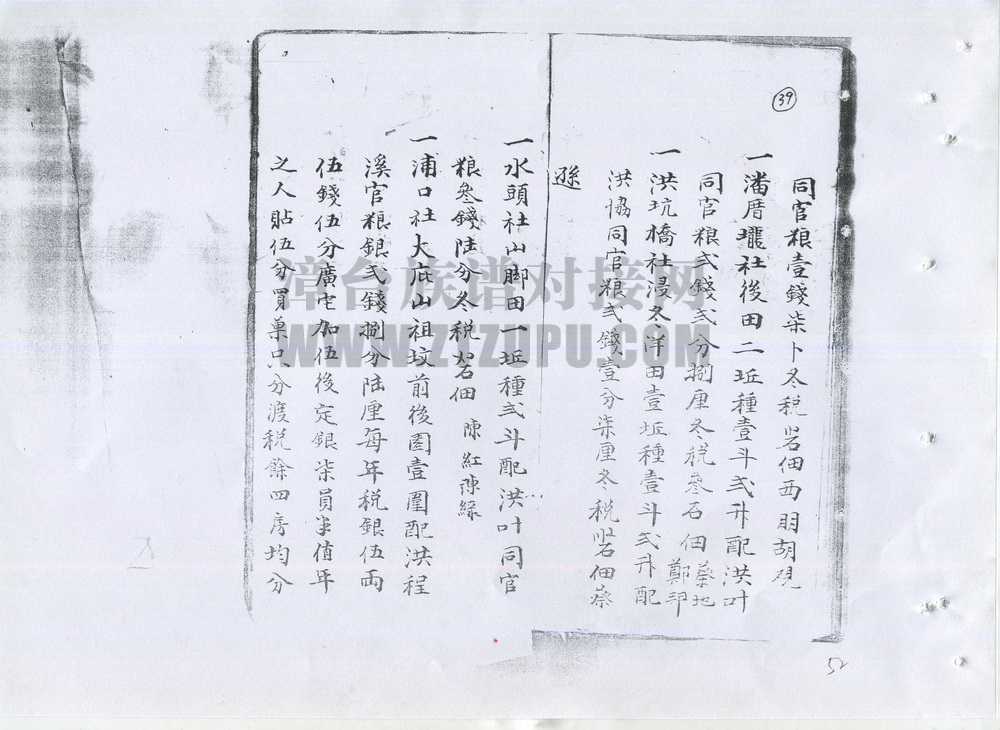 39
同官粮壹錢柒卜冬税岩佃西朋胡現
一潘厝壠社後田二坵種壹斗弍升配洪叶
同官粮弍錢弍分捌厘冬税叄石佃蔡地鄭邘
一洪坑橋社浸冬洋田壹坵種壹斗弍升配
洪恊同官粮弍錢壹分柒厘冬税岩佃蔡
遜
一水頭社山脚田一坵種弍斗配洪叶同官
粮叄錢陆分冬税岩佃陳紅陳緑
一浦口社大庇山祖坟前後園壹圍配洪程
溪官粮銀弍錢捌分陆厘每年税銀伍両
伍錢伍分廣宅加伍後定銀柒員半值年
之人貼伍分買菓只分渡税餘四房均分
漳台族谱对接网
WWW.ZTZUPU.COM
52